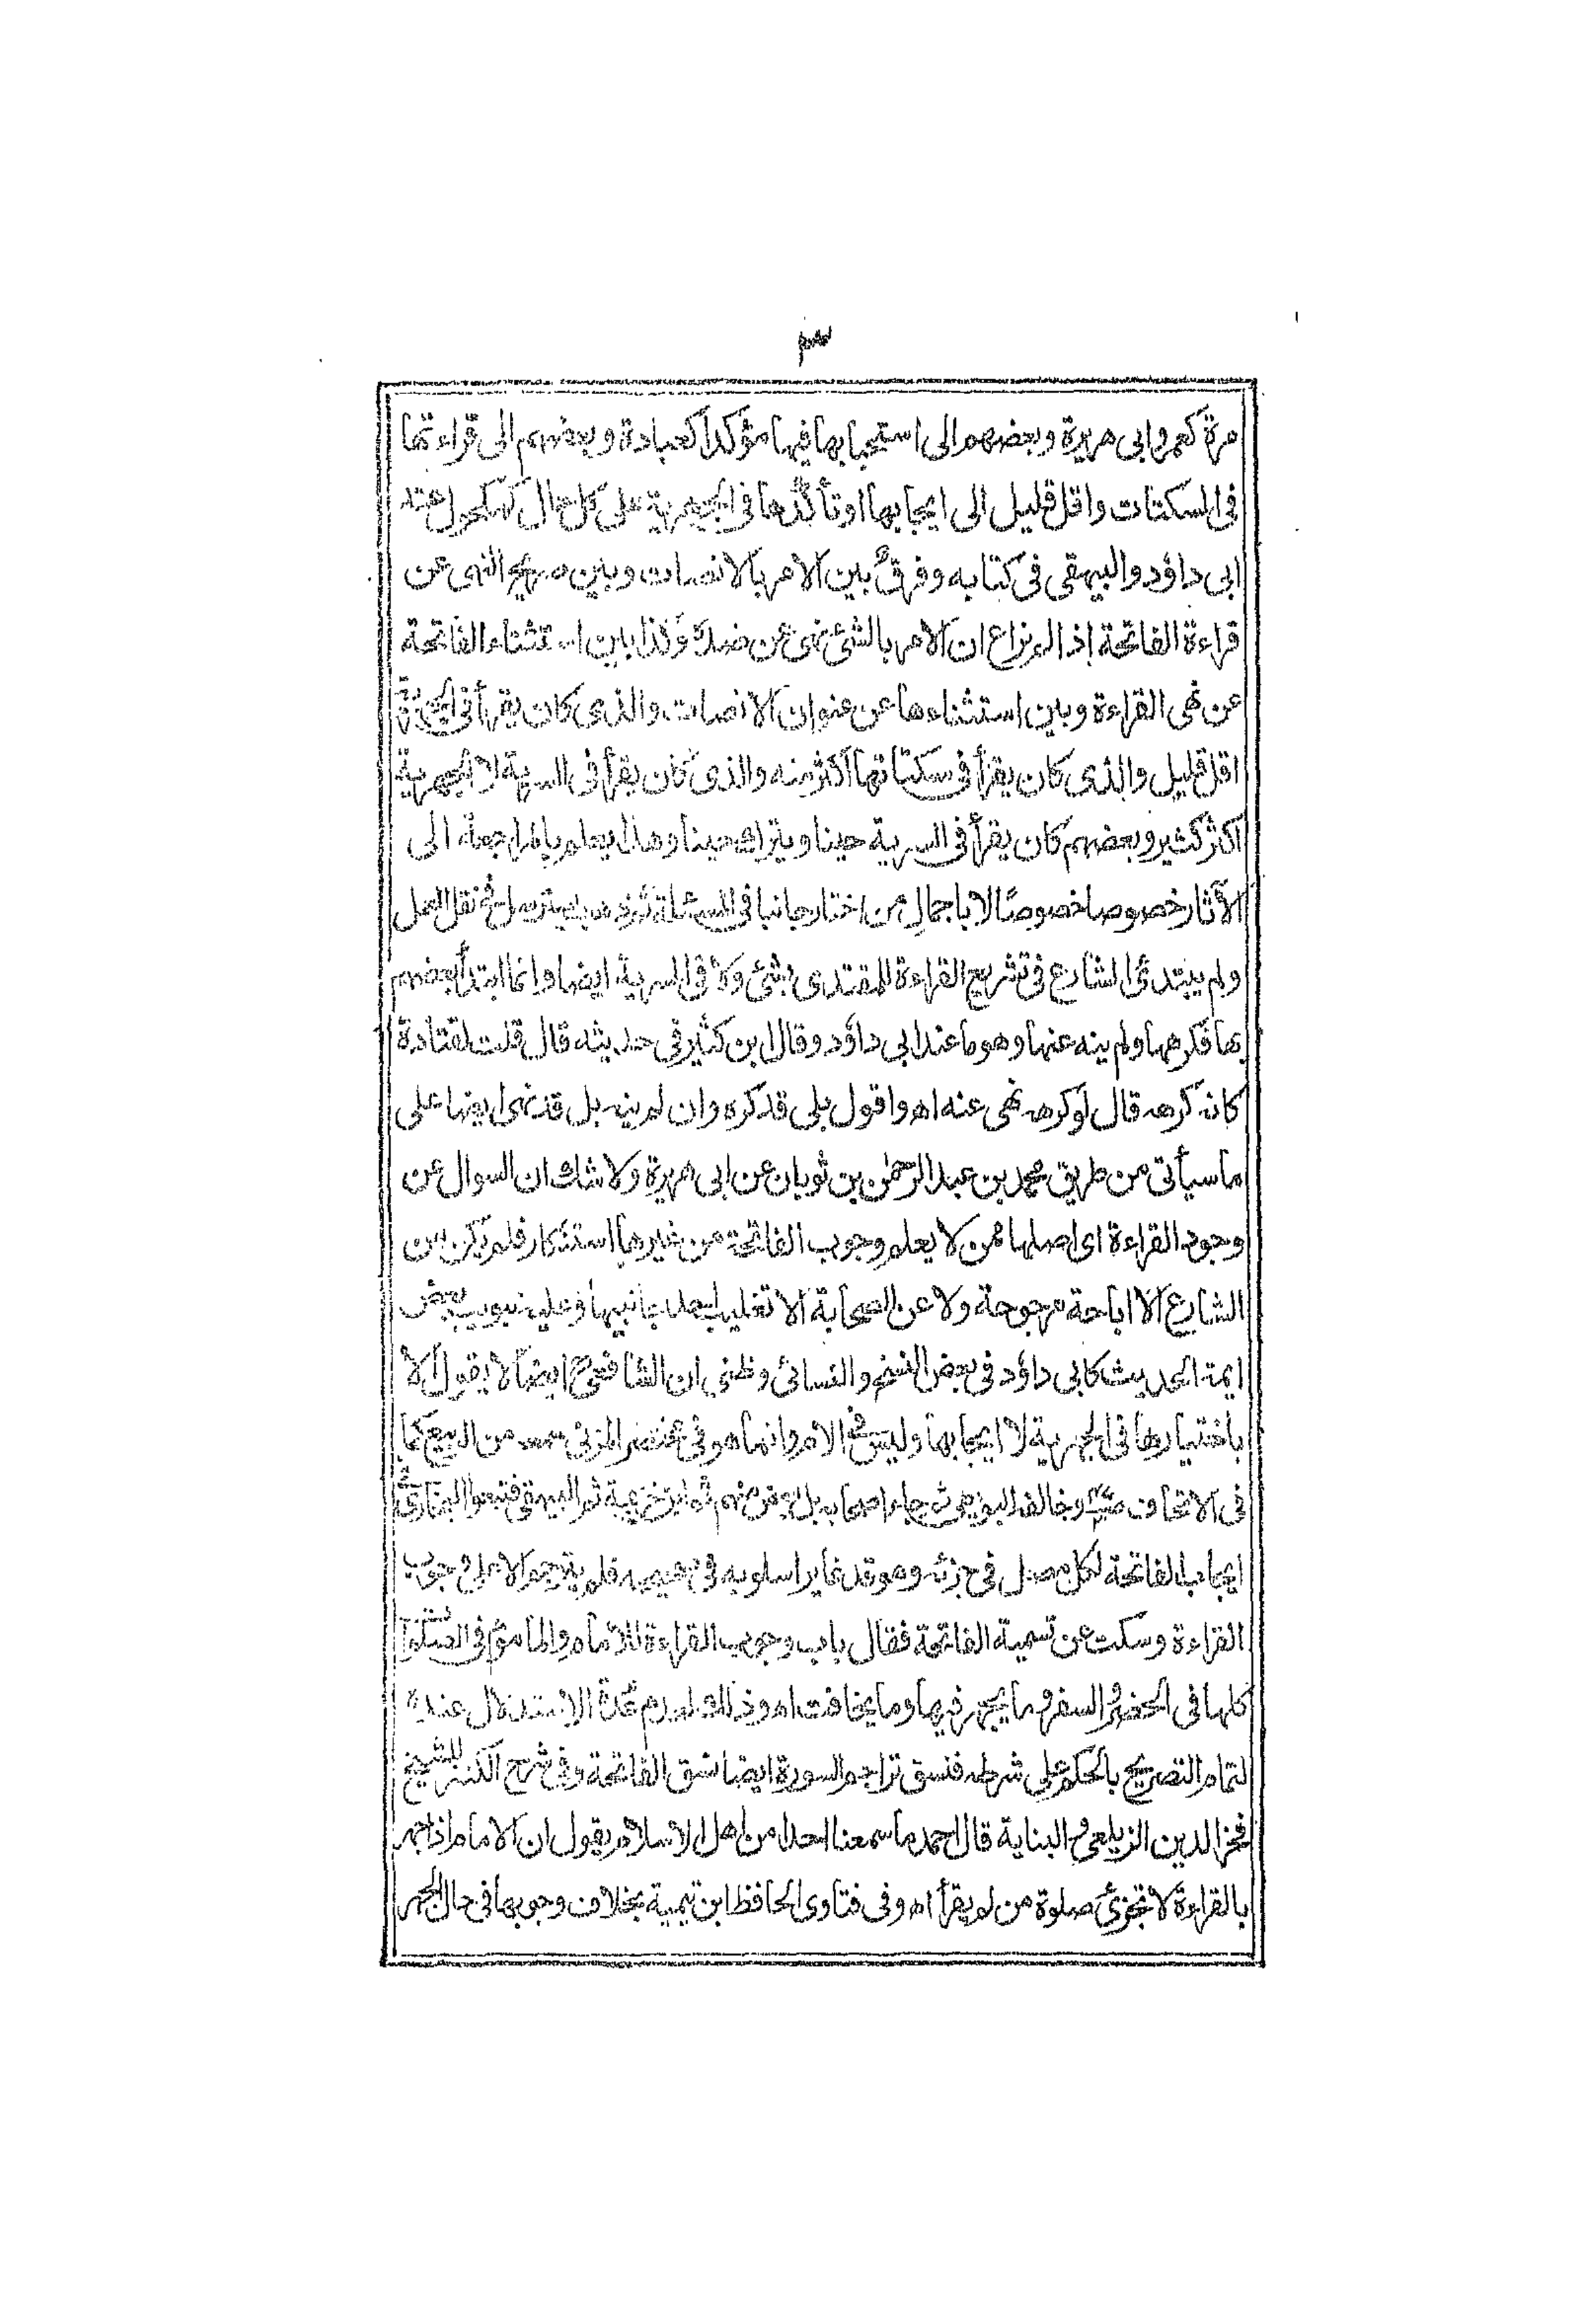 ٣
مرة كعمر وابى هريرة وبعضهم الى استحبابها فيها مؤكدا كعبادة وبعضهم الى قراءتها
فى السكتات واقل قليل الى ايجابها او تأكدها فى الجهرية على كل حال كمكحول عند
ابى داؤد والبيهقى فى كتابه وفرق بين الامر بالانصات وبين صريح النهى عن
قراءة الفاتحة اذ لا نزاع ان الامر بالشئ نهى عن ضده وكذا بين استثناء الفاتحة
عن نهى القراءة وبين استثناءها عن عنوان الانصات والذى كان يقرأ فى الجهرية
اقل قليل والذى كان يقرأ فى سكتاتها اكثر منه والذى كان يقرأ فى السرية لا الجهرية
اكثر كثير وبعضهم كان يقرأ فى السرية حينا ويترك حينا وهذا يعلم بالمراجعة الى
الآثار خصوصا خصوصًا لا باجمال من اختار جانبا فى المسئلة نقل العمل
ولم يبتدئ الشارع فى تشريع القراءة للمقتدى بشئ ولا فى السرية ايضا وانما ابتدأ بعضهم
بها فكرهها ولم ينه عنها وهو ما عند ابى داؤد وقال ابن كثير فى حديثه قال قلت لقتادة
كانه كرهه قال لو كرهه نهى عنه اه واقول بلى قد كره وان لم ينه بل قد نهى ايضا على
ما سيأتى من طريق محمد بن عبد الرحمٰن بن ثوبان عن ابى هريرة ولا شك ان السوال عن
وجود القراءة اى اصلها ممن لا يعلم وجوب الفاتحة من غيرها استنكار فلم يكن من
الشارع الا اباحة مرجوحة ولا عن الصحابة الا تغليب احد جانبيها وعليه تبويب بعض
ايمة الحديث كابى داؤد فى بعض النسخ والنسائى وظنى ان الشافعىؒ ايضًا لا يقول الا
باختيارها فى الجهرية لا ايجابها وليس فى الام وانما هو فى مختصر المزنى من الربيع كما
فى الاتحاف وخالفه البويطى ثم جاء اصحابه بل بعض منهم ثم ابن خزيمة ثم البيهقى فتبعوا البخارى
ايجاب الفاتحة لكل مصل فى جزئه وهو قد غاير اسلوبه فى صحيحه فلم يترجم الا على وجوب
القراءة وسكت عن تسمية الفاتحة فقال باب وجوب القراءة للامام والماموم فى الصلوات
كلها فى الحضر والسفر وما يجهر فيها وما يخافت اه وذلك لعدم الاستدلال عنده
لتمام التصريح بالحكم على شرطه فنسق تراجم السورة ايضا نسق الفاتحة وفى شرح الكنز للشيخ
فخر الدين الزيلعى والبناية قال احمد ما سمعنا احدا من اهل الاسلام يقول ان الامام اذا جهر
بالقراءة لا تجزئ صلوة من لم يقرأ اه وفى فتاوى الحافظ ابن تيمية بخلاف وجوبها فى حال الجهر